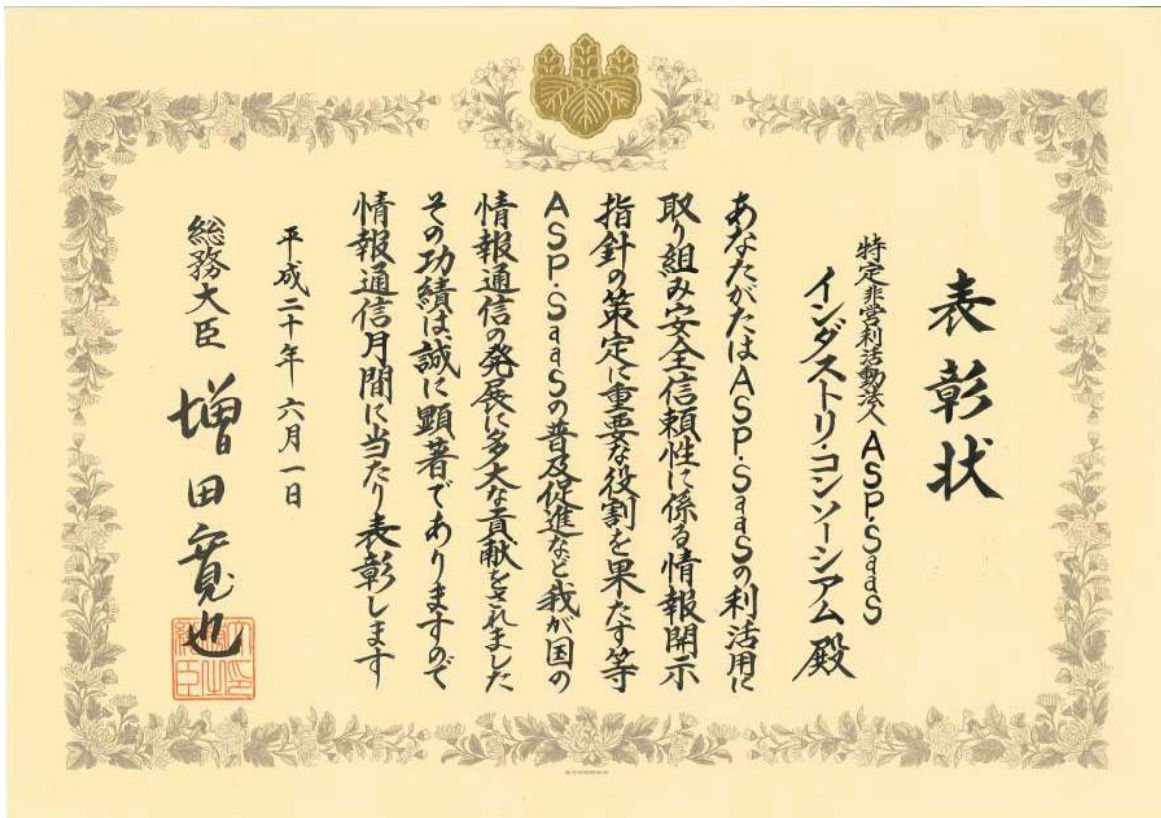 表彰状
特定非営利活動法人 ASP・SaaS
インダストリ・コンソーシアム 殿
あなたがたはASP・SaaSの利活用に
取り組み安全信頼性に係る情報開示
指針の策定に重要な役割を果たす等
ASP・SaaSの普及促進など我が国の
情報通信の発展に多大な貢献をされました
その功績は誠に顕著でありますので
情報通信月間に当たり表彰します
平成二十年六月一日
総務大臣 増田寛也